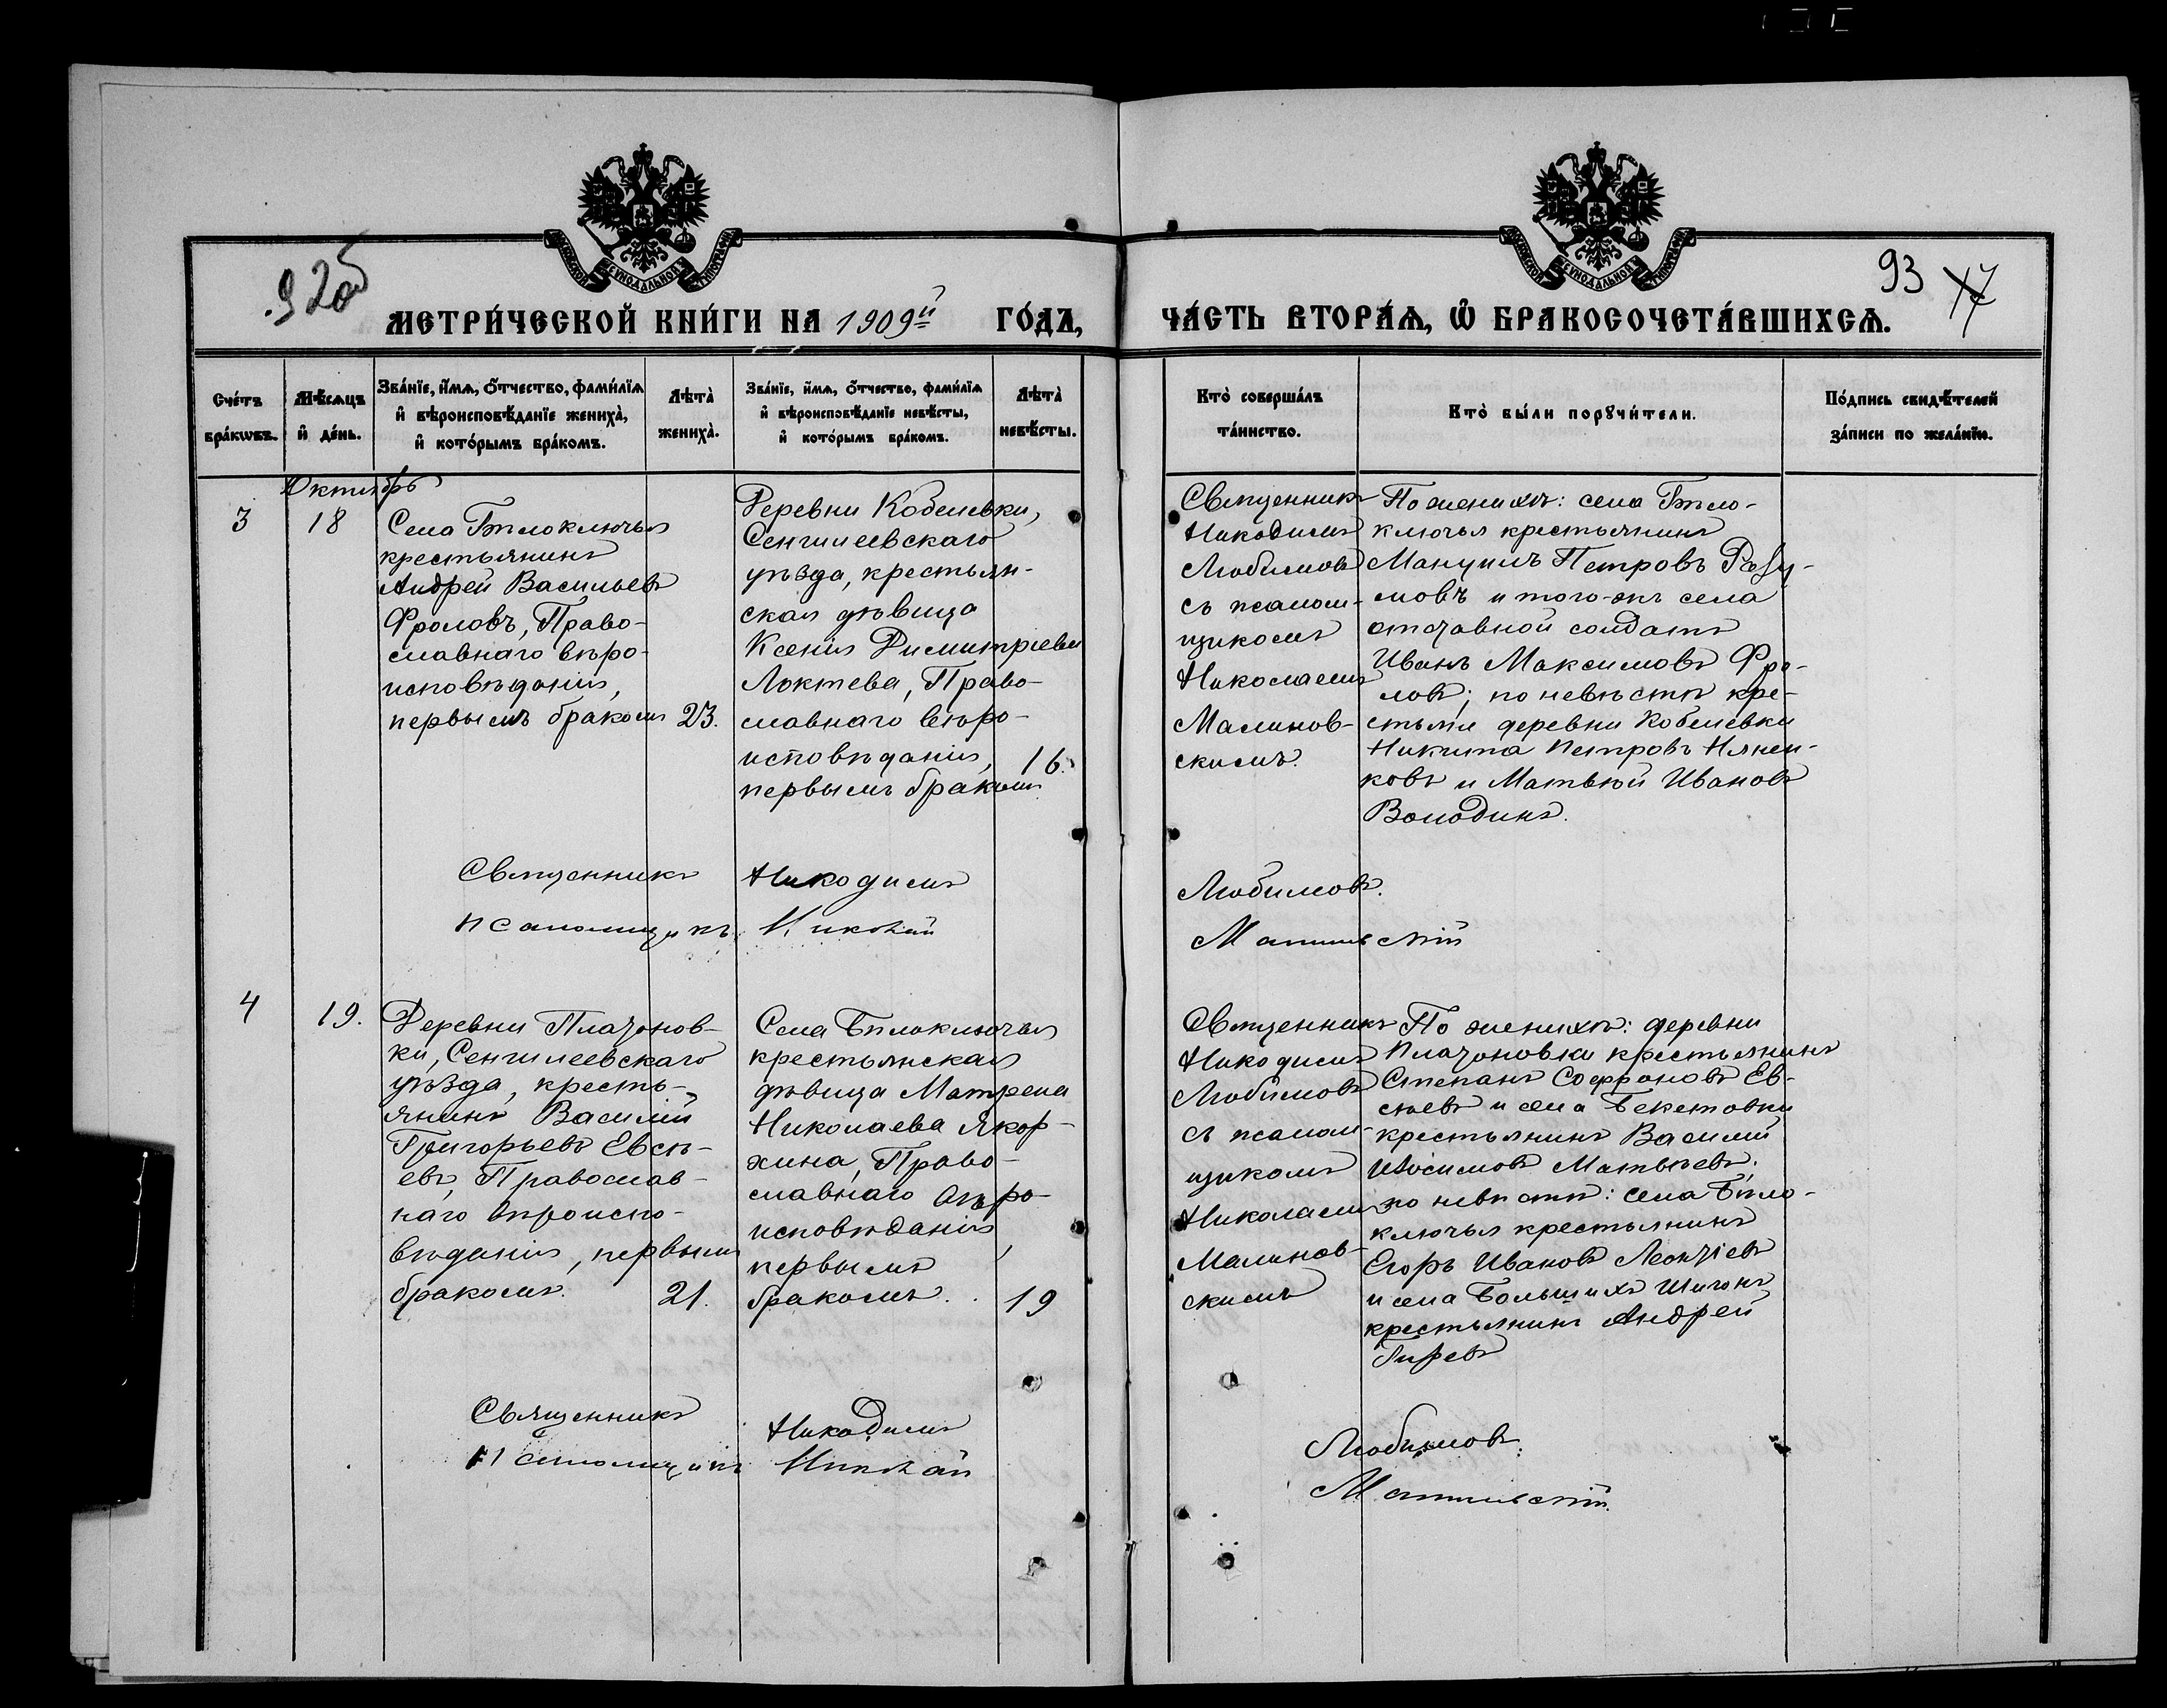 92об
93
17
МЕТРИ́ЧЕСКОЙ КНИ́ГИ НА 1909й ГО́ДЪ,
ЧА́СТЬ ВТОРА́Ѧ, Ѿ БРАКОСОЧЕТА́ВШИХСѦ.
Сче́тъ
бра́кѡвъ.
Мѣ́сяцъ
и҆ де́нь.
Зва́нїе, и҆́мѧ, ѻ҆́тчество, фами́лїѧ
и҆ вѣроисповѣ́данїе женихà,
и҆ кото́рымъ бра́комъ.
Лѣта̀
женихà.
Зва́нїе, и҆́мѧ, ѻ҆́тчество, фами́лїѧ
и҆ вѣроисповѣ́данїе невѣ́сты,
и҆ кото́рымъ бра́комъ.
Лѣта̀
невѣ́сты.
Кто̀ соверша́лъ
та́инство.
Кто̀ бы́ли порꙋчи́тели.
По́дпись свидѣ́телей
за́писи по жела́нїю.
Октябрь
3
18
Села Бѣлоключья
крестьянинъ
Андрей Васильевъ
Фроловъ, Право-
славнаго вѣро-
исповѣданія,
первымъ бракомъ
23.
Деревни Кобелевки,
Сенгилеевскаго
уѣзда, крестьян-
ская дѣвица
Ксенія Димитріева
Локтева, Право-
славнаго вѣро-
исповѣданія,
первымъ бракомъ
16.
Священникъ
Никодимъ
Любимовъ
съ псалом-
щикомъ
Николаемъ
Малинов-
скимъ.
По женихѣ: села Бѣло-
ключья крестьянинъ
Мануилъ Петровъ Разу-
мовъ и того-же села
отставной солдатъ
Иванъ Максимовъ Фро-
ловъ; по невѣстѣ кре-
стьяне деревни Кобелевки
Никита Петровъ
ковъ и Матвѣй Ивановъ
Володинъ.
Священникъ Никодимъ Любимовъ.
псаломщикъ Николай Малиновскій
4
19.
Деревни Платонов-
ки, Сенгилеевскаго
уѣзда, кресть-
янинъ Василій
Григорьевъ Евсѣ-
евъ, Православ-
наго вѣроиспо-
вѣданія, первымъ
бракомъ.
21.
Села Бѣлоключья
крестьянская
дѣвица Матрена
Николаева Якор-
кина, Право-
славнаго вѣро-
исповѣданія,
первымъ
бракомъ.
19
Священникъ
Никодимъ
Любимовъ
съ псалом-
щикомъ
Николаемъ
Малинов-
скимъ
По женихѣ: деревни
Платоновки крестьянинъ
Степанъ Софроновъ Ев-
сѣевъ и села Бекетовки
крестьянинъ Василій
Матвѣевъ;
по невѣстѣ: села Бѣло-
ключья крестьянинъ
Егоръ Ивановъ Леонтіевъ
и села Большихъ Шигонъ
крестьянинъ Андрей
Священникъ Никодимъ Любимовъ.
Псаломщикъ Николай Малиновскій.